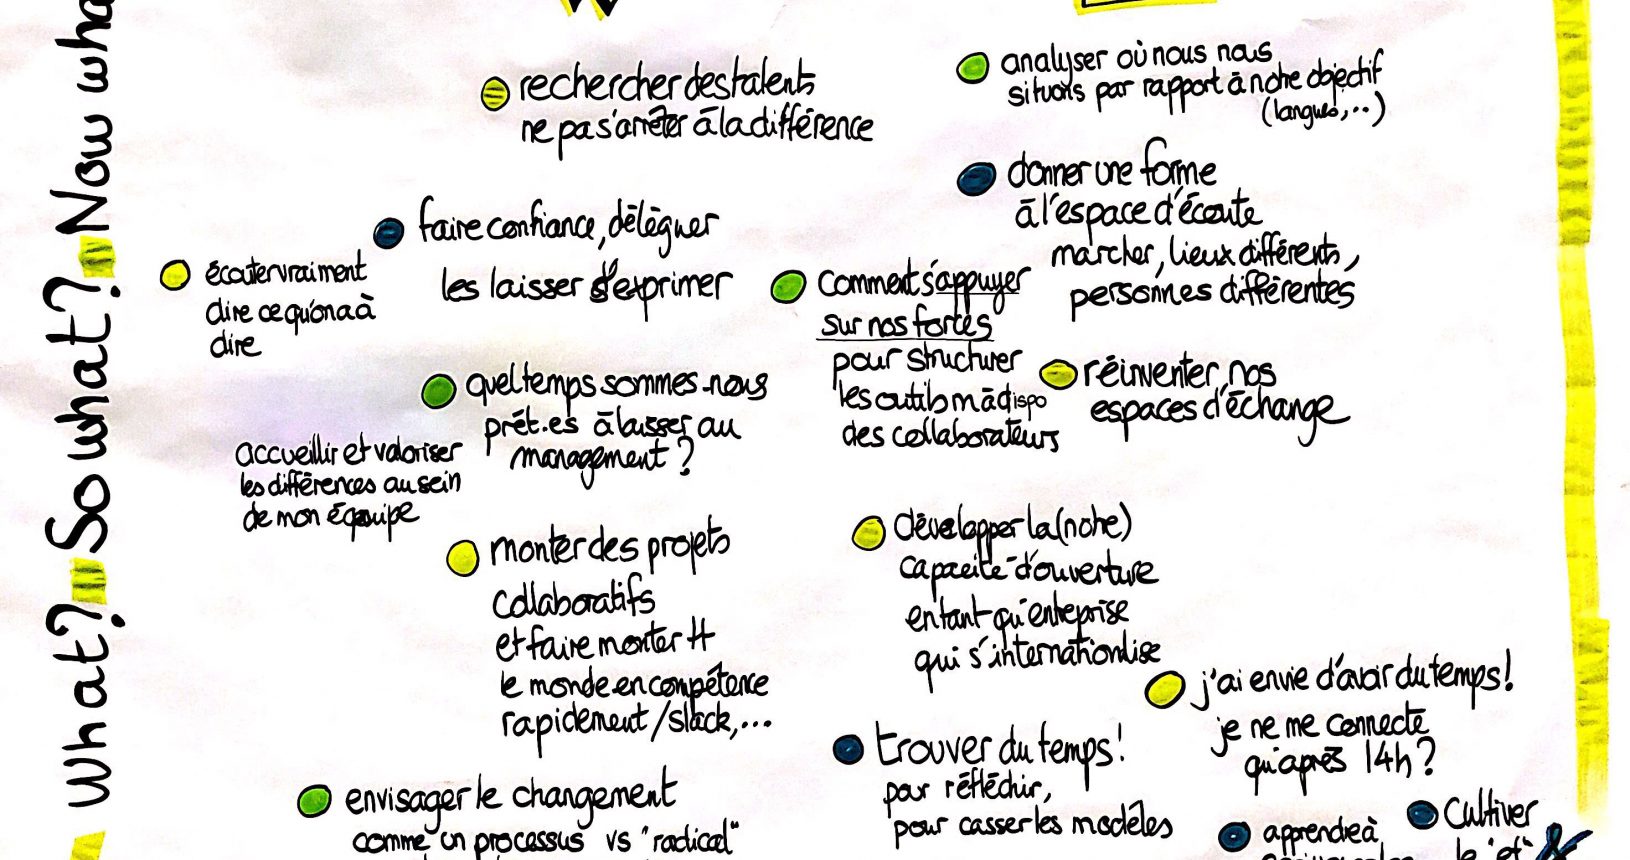 What? So what? Now wha
rechercher des talents
ne pas s'arrêter à la différence
analyser où nous nous
situons par rapport à notre objectif
(langues,..)
donner une forme
à l'espace d'écoute
marcher, lieux différents,
personnes différentes
faire confiance, déléguer
les laisser s'exprimer
écouter vraiment
dire ce qu'on a à
dire
comment s'appuyer
sur nos fortes
pour structurer
les outils mà dispo
des collaborateurs
réinventer nos
espaces d'échange
quel temps sommes-nous
prêt.es à laisser au
management ?
accueillir et valoriser
les différences au sein
de mon équipe
monter des projets
collaboratifs
et faire monter tt
le monde en compétence
rapidement / slack,...
développer la (notre)
capacité d'ouverture
en tant qu'entreprise
qui s'internationalise
j'ai envie d'avoir du temps!
je ne me connecte
qu'après 14h ?
trouver du temps!
pour réfléchir,
pour casser les modèles
envisager le changement
comme un processus vs "radical"
Cultiver
le "et" &
apprendre à